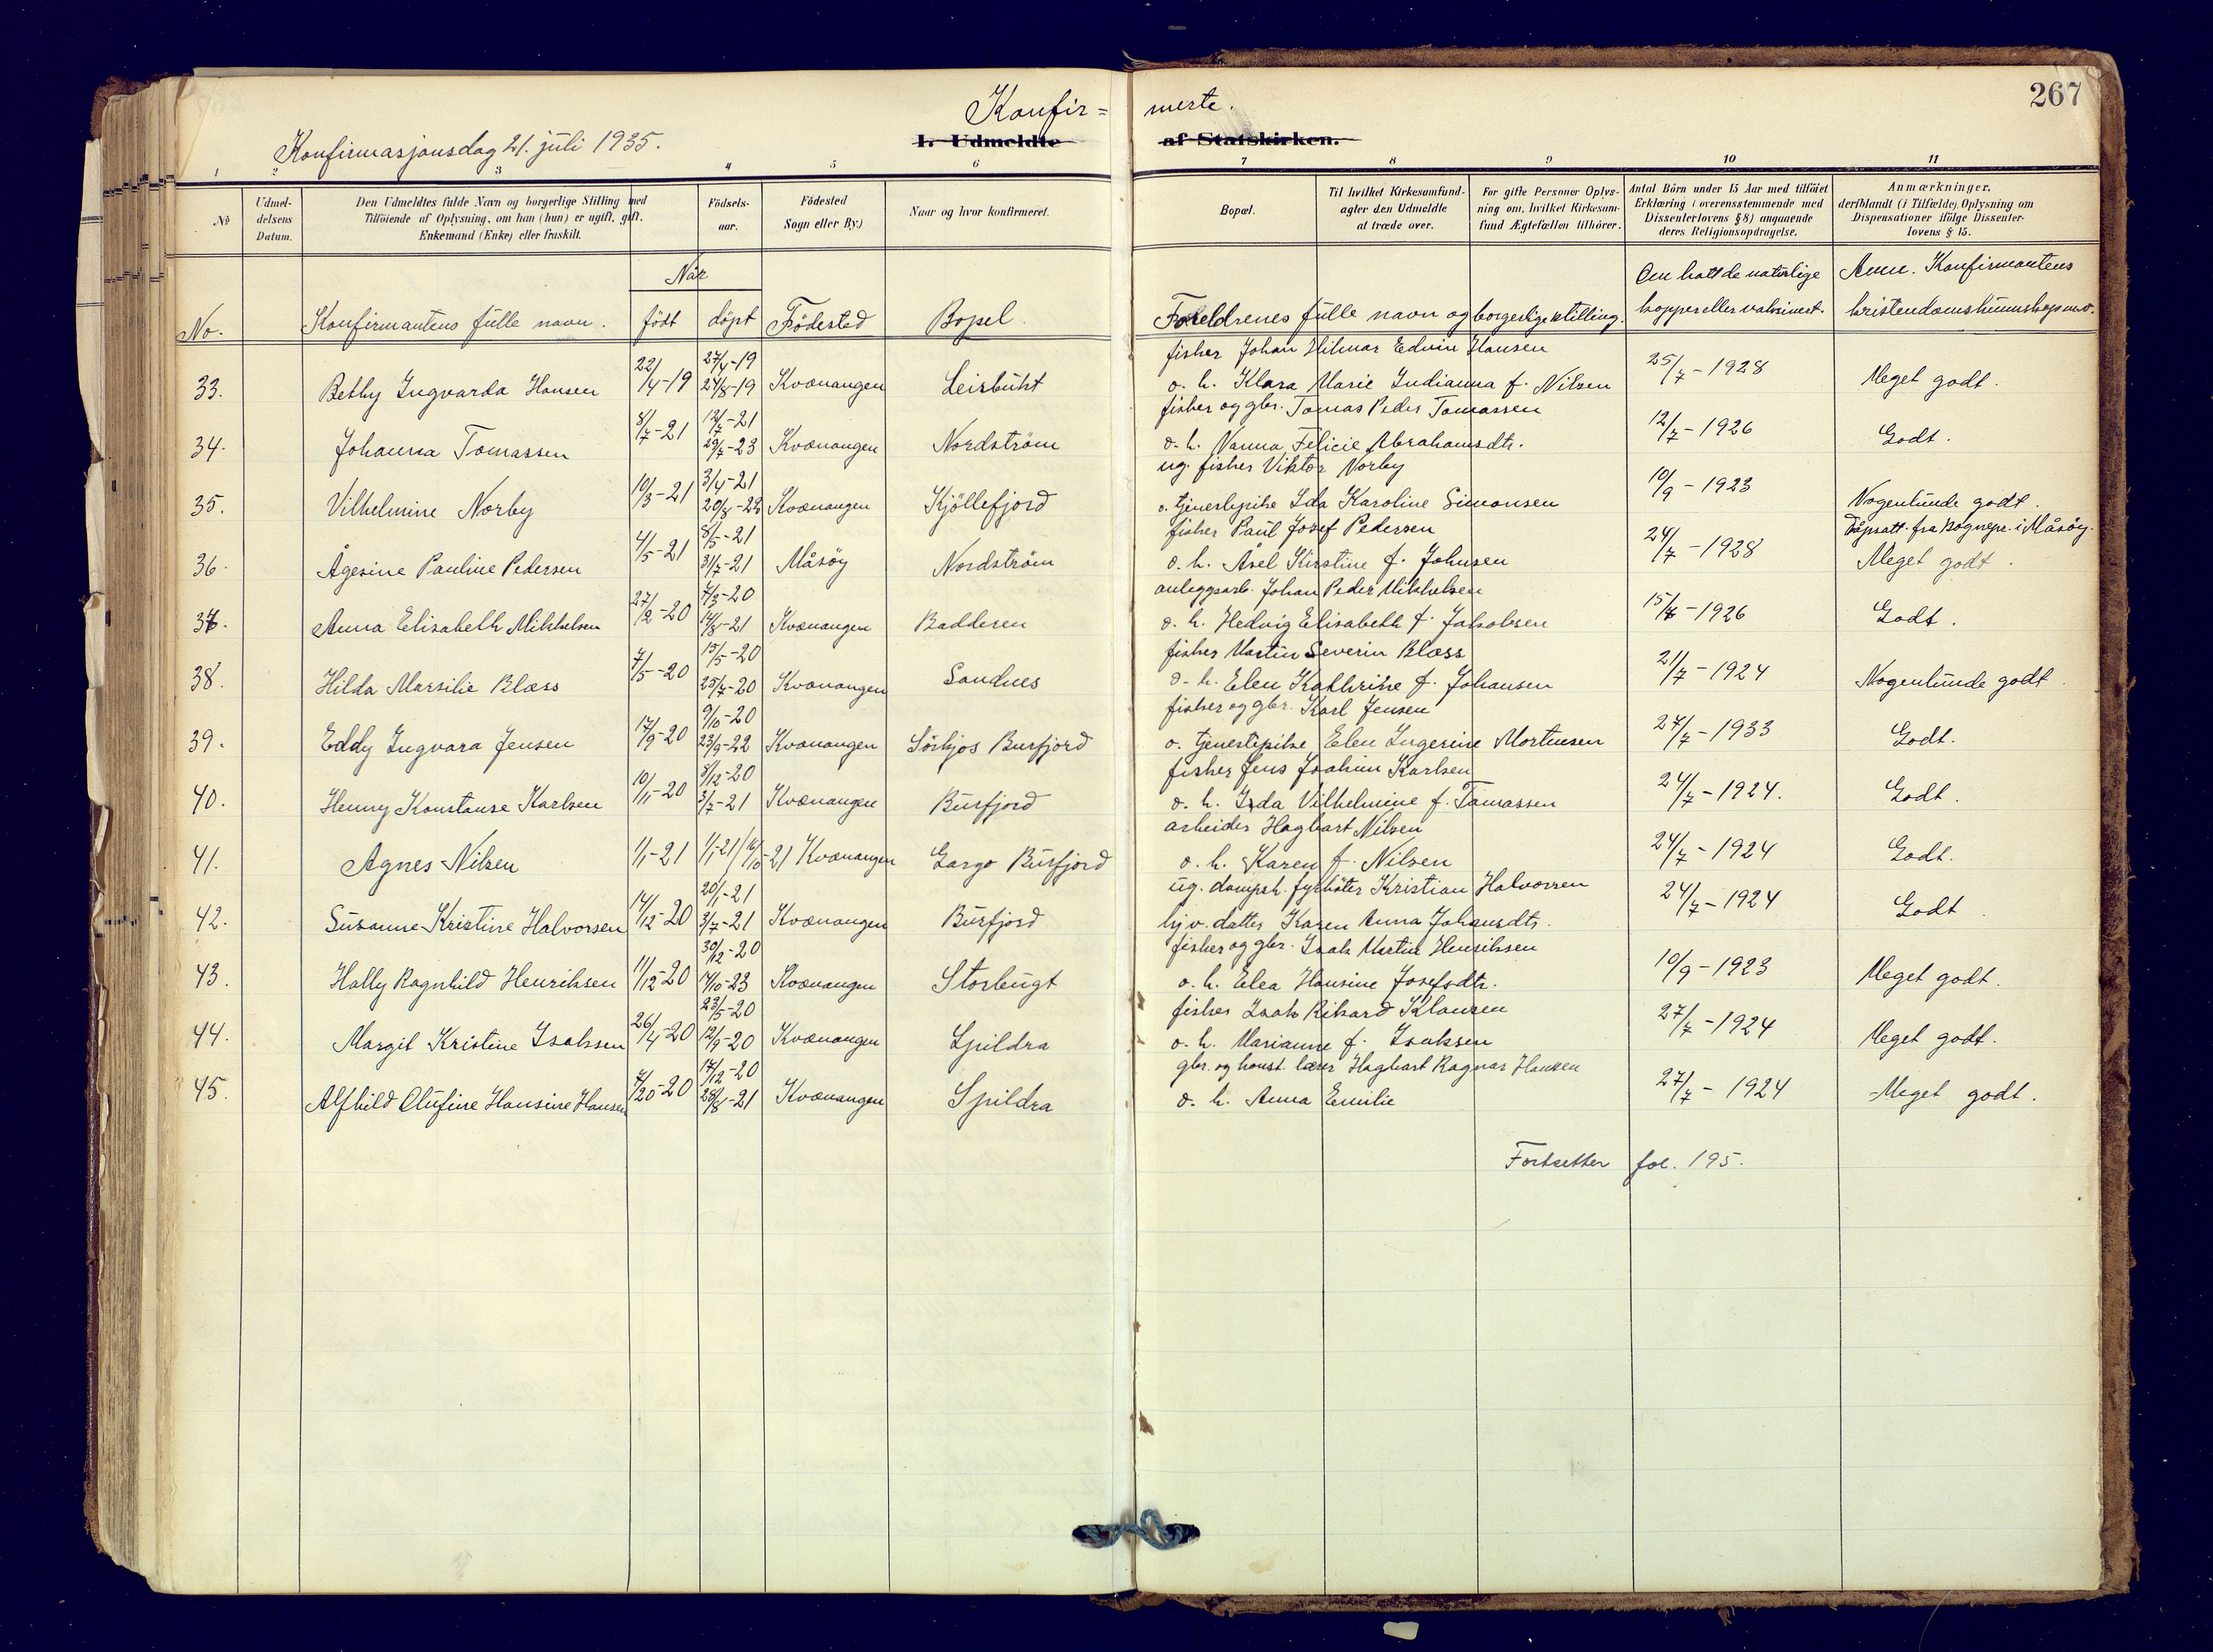 267
Konfir= merte.
Konfirmasjonsdag 21. juli 1935.
I. Udmeldte af Statskirken.
1 2 3 4 5 6 7 8 9 10 11
No
Udmeldelsens Datum.
Den Udmeldtes fulde Navn og borgerlige Stilling med
Tilföiende af Oplysning, om han (hun) er ugift, gift.
Enkemand (Enke) eller fraskilt.
Födsels-
aar.
Födested
Sogn eller By.)
Naar og hvor konfirmeret.
Bopæl.
Til hvilket Kirkesamfund
agter den Udmeldte
at træde over.
For gifte Personer Oplys-
ning om, hvilket Kirkesam-
fund Ægtefællen tilhörer.
Antal Börn under 15 Aar med tilföiet
Erklæring (overensstemmende med
Dissenterlovens § 8) angaaende
deres Religionsopdragelse.
Anmærkninger,
deriblandt (i Tilfælde) Oplysning om
Dispensationer ifölge Dissenter-
lovens § 15.
Når
No. Konfirmantens fulle navn. födt döpt Födested Bopel.
Foreldrenes fulle navn og borgerlige stilling.
Om hatt de naturlige
kopper eller vaksinert.
Anm. Konfirmantens
kristendomskunnskap m.v.
33. Betby Ingvarda Hansen 22/4-19 27/4-19 24/8-19 Kvænangen Leirbukt
fisker Johan Hilmar Edvin Hansen
o. h. Klara Marie Indianna f. Nilsen 25/7-1928 Meget godt.
34. Johanna Tomassen 8/7-21 12/7-21 29/7-23 Kvænangen Nordström
fisker og gbr. Tomas Peder Tomassen
o. h. Nanna Felicie Abrahamsdtr. 12/7-1926 Godt.
35. Vilhelmine Norby 10/3-21 3/4-21 20/8-22 Kvænangen Kjöllefjord
ug. fisker Viktor Norby
o. tjenestepike Ida Karoline Simonsen 10/9-1923 Nogenlunde godt.
36. Ågesine Pauline Pedersen 4/5-21 8/5-21 31/7-21 Måsöy Nordström
fisker Paul Josef Pedersen
o. h. Åsel Kirstine f. Johnsen 24/7-1928 Dåpsatt. fra Sogneps. i Måsöy.
Meget godt.
37. Anna Elisabeth Mikkelsen 27/2-20 7/3-20 14/8-21 Kvænangen Badderen
anleggsarb. Johan Peder Mikkelsen
o. h. Hedvig Elisabeth f. Jakobsen 15/7-1926 Godt.
38. Hilda Marsilie Blæss 7/5-20 15/5-20 25/7-20 Kvænangen Sandnes
fisker Martin Severin Blæss
o. h. Elen Kathrine f. Johansen 21/7-1924 Nogenlunde godt.
39. Eddy Ingvara Jensen 17/9-20 9/10-20 23/9-22 Kvænangen Sörkjos Burfjord
fisker og gbr. Karl Jensen
o. tjenestepike Elen Ingerine Mortensen 27/7-1933 Godt.
40. Henny Konstanse Karlsen 10/11-20 8/12-20 3/7-21 Kvænangen Burfjord
fisker Jens Joakim Karlsen
o. h. Inda Vilhelmine f. Tomassen 24/7-1924. Godt.
41. Agnes Nilsen 1/1-21 1/1-21/16/10-21 Kvænangen Gargo Burfjord
arbeider Hagbart Nilsen
o. h. Karen f. Nilsen 24/7-1924 Godt.
42. Susanne Kristine Halvorsen 14/12-20 20/1-21 3/7-21 Kvænangen Burfjord
ug. dampsk. fyrböter Kristian Halvorsen
hjv. datter Karen Anna Johansdtr. 24/7-1924 Godt
43. Hally Ragnhild Henriksen 11/12-20 30/12-20 14/10-23 Kvænangen Storbugt
fisker og gbr. Isak Martin Henriksen
o. h. Elea Hansine Josefsdtr. 10/9-1923 Meget godt.
44. Margit Kristine Isaksen 26/4-20 23/5-20 12/9-20 Kvænangen Spildra
fisker Isak Rikard Klausen
o. h. Marianne f. Isaksen 27/7-1924 Meget godt.
45. Alfhild Olufine Hansine Hansen 7/20-20 17/12-20 28/8-21 Kvænangen Spildra
gbr. og konst. lærer Hagbart Ragnar Hansen
o. h. Anna Emilie 27/7-1924 Meget godt.
Fortsetter fol. 195.